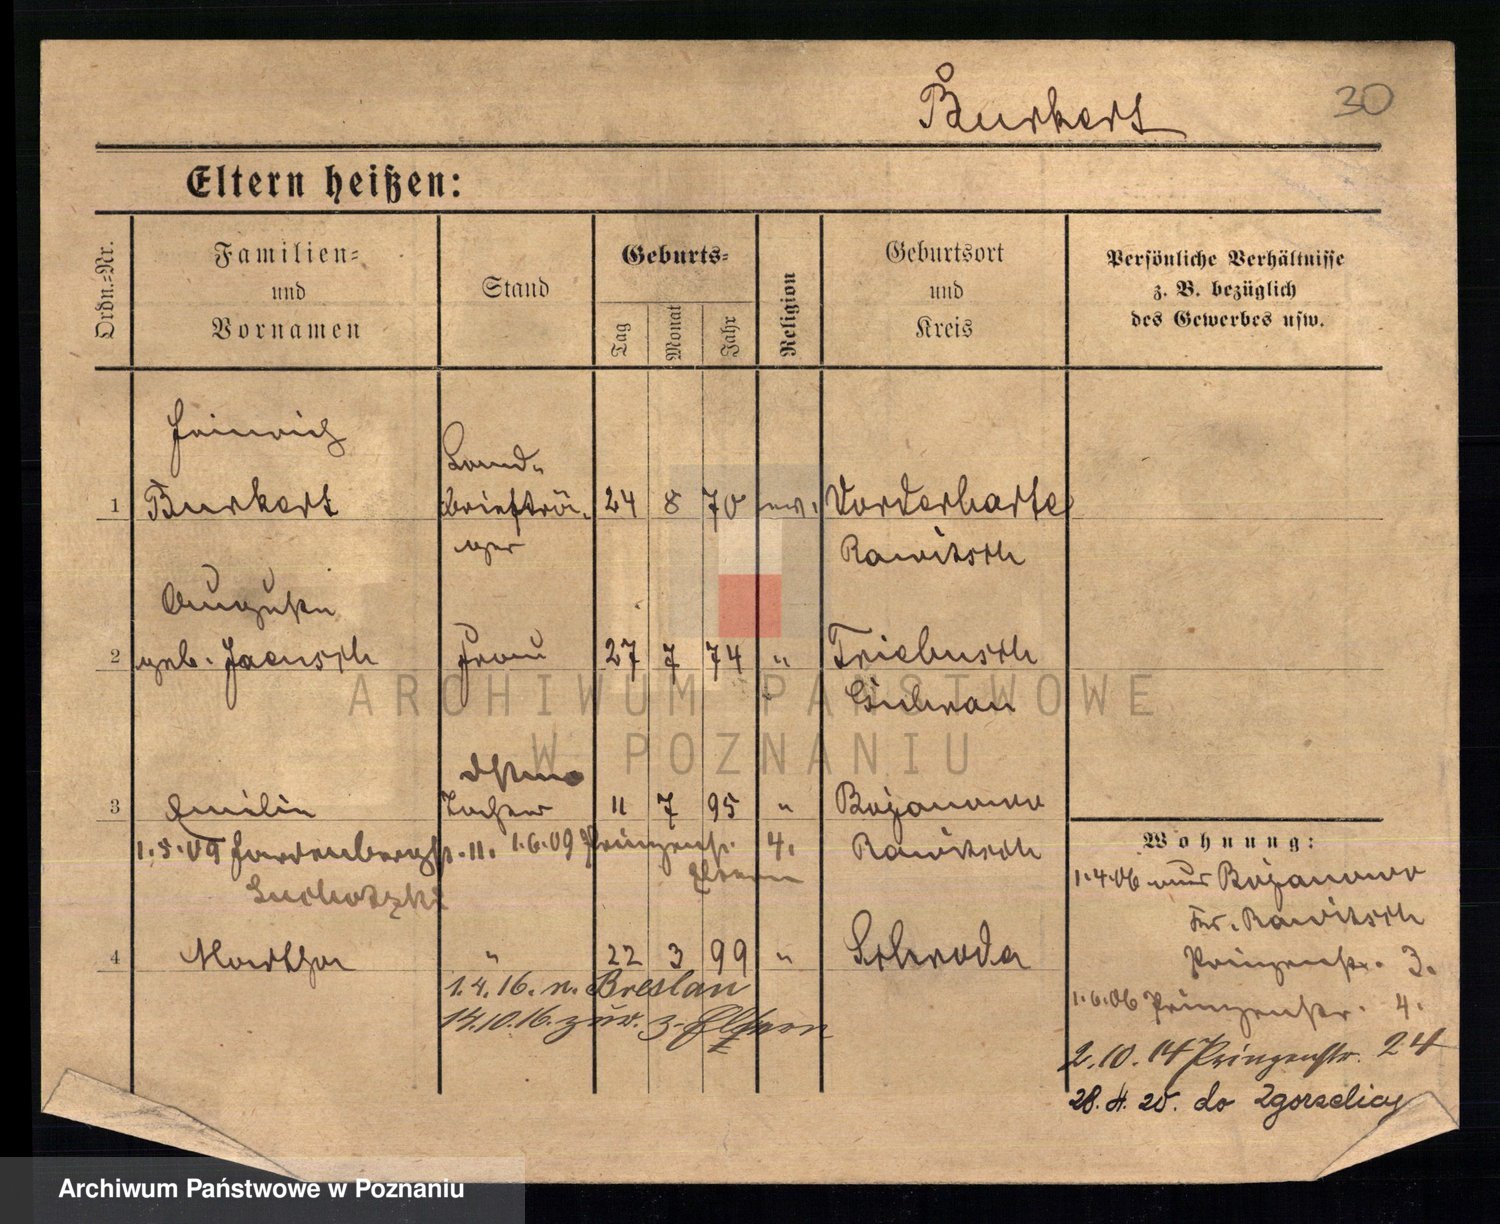 Burkert
30
Eltern heißen:
Ordn.-Nr.
Familien-
und
Vornamen
Stand
Geburts-
Tag
Monat
Jahr
Religion
Geburtsort
und
Kreis
Persönliche Verhältnisse
z. B. bezüglich
des Gewerbes usw.
Heinrich
Land-
1 Burkert briefträ- 24 8 70 ev. Vorderharte
ger Rawitsch
Auguste
2 geb. Jaensch Frau 27 7 74 " Triebusch
Guhrau
3 Emilie Tochter 11 7 95 " Bojanowo
1.5.09 Gartenbergstr. 11. 1.6.09 Prinzenstr. 4. Rawitsch
Eltern
Suchotzki
4 Martha " 22 3 99 " Schroda
1.4.16. n. Breslau
14.10.16. zur. z. Eltern
Wohnung:
1.4.06 aus Bojanowo
Kr. Rawitsch
Prinzenstr. 3.
1.6.06 Prinzenstr. 4.
2.10.14 Prinzenstr. 24
28.4.20. do Zgorzelicy
ARCHIWUM PAŃSTWOWE
W POZNANIU
Archiwum Państwowe w Poznaniu